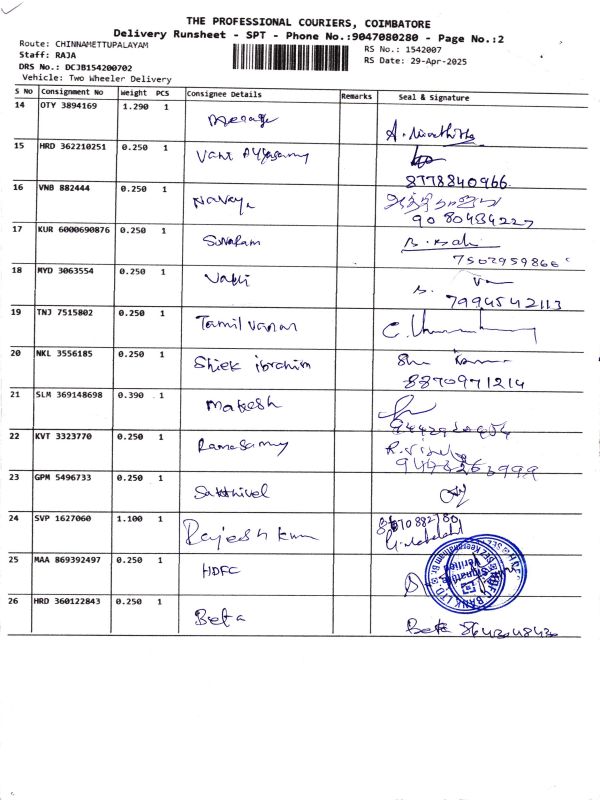 THE PROFESSIONAL COURIERS, COIMBATORE
Delivery Runsheet - SPT - Phone No.:9047080280 - Page No.:2
Route: CHINNAMETTUPALAYAM
RS No.: 1542007
Staff: RAJA
RS Date: 29-Apr-2025
DRS No.: DCJB154200702
Vehicle: Two Wheeler Delivery
S No Consignment No Weight PCS Consignee Details Remarks Seal & Signature
14 OTY 3894169 1.290 1
15 HRD 362210251 0.250 1 Vani Ayyasamy
8778840966
16 VNB 882444 0.250 1
9080484227
17 KUR 6000690876 0.250 1 Sivaram
7502959866
18 MYD 3063554 0.250 1
7994542113
19 TNJ 7515802 0.250 1 Tamil vanan
20 NKL 3556185 0.250 1 Shiek ibrahim
8870971214
21 SLM 369148698 0.390 1 Makesh
22 KVT 3323770 0.250 1 Ramasamy
23 GPM 5496733 0.250 1 Sakthivel
24 SVP 1627060 1.100 1 Rajesh kum
25 MAA 869392497 0.250 1 HDFC
HDFC BANK LTD
Signature
Verified
26 HRD 360122843 0.250 1 Beta
Beta